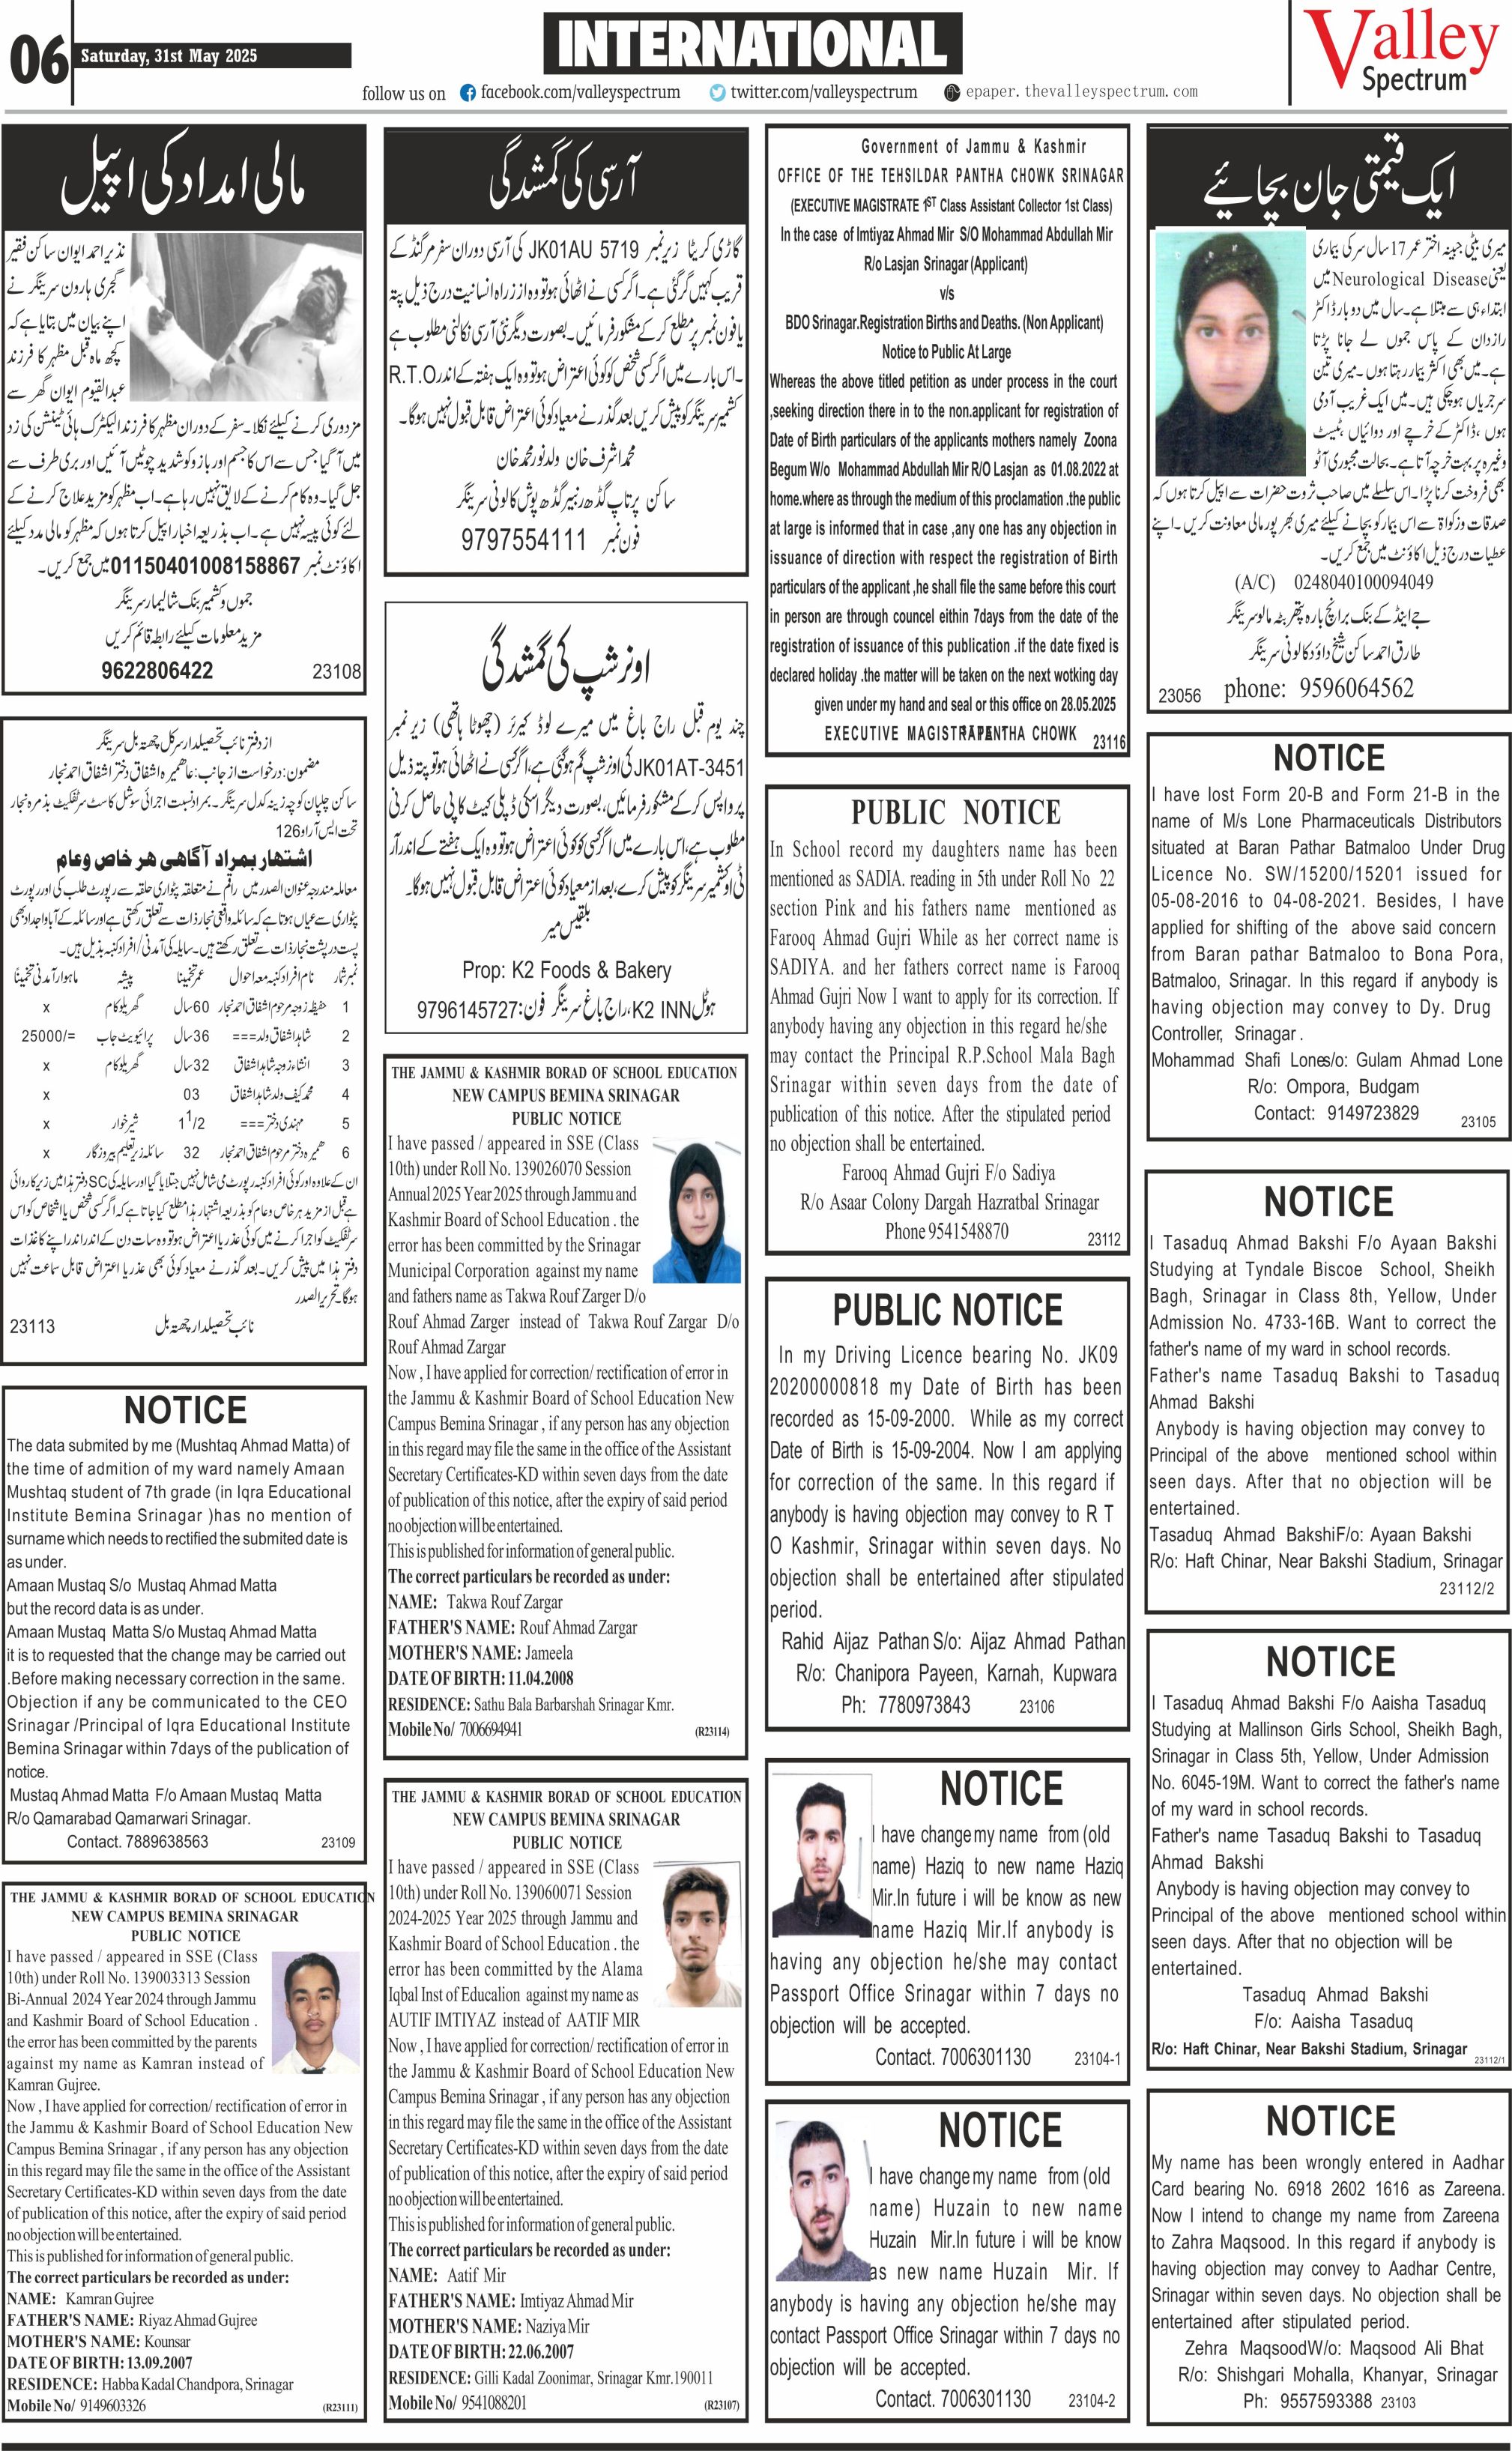 06
Saturday, 31st May 2025
INTERNATIONAL
follow us on facebook.com/valleyspectrum twitter.com/valleyspectrum epaper.thevalleyspectrum.com
Valley
Spectrum
مالی امداد کی اپیل
نذیر احمد ایوان ساکن فقیر
گجری ہارون سرینگر نے
اپنے بیان میں بتایا ہے کہ
کچھ ماہ قبل مظہر کا فرزند
عبدالقیوم ایوان گھر سے
مزدوری کرنے کیلئے نکلا۔ سفر کے دوران مظہر کا فرزند الیکٹرک ہائی ٹینشن کی زد
میں آگیا جس سے اس کا جسم اور بازو کو شدید چوٹیں آئیں اور بری طرف سے
جل گیا۔ وہ کام کرنے کے لایق نہیں رہا ہے۔ اب مظہر کو مزید علاج کرنے کے
لئے کوئی پیسہ نہیں ہے۔ اب بذریعہ اخبار اپیل کرتا ہوں کہ مظہر کو مالی مدد کیلئے
اکاؤنٹ نمبر 01150401008158867 میں جمع کریں۔
جموں وکشمیر بنک شالیمار سرینگر
مزید معلومات کیلئے رابطہ قائم کریں
9622806422 23108
از دفتر نائب تحصیلدار سرکل چھتہ بل سرینگر
مضمون: درخواست از جانب: عاھمیرہ اشفاق دختر اشفاق احمد نجار
ساکن چلپان کوچہ زینہ کدل سرینگر۔ بمراد نسبت اجرائی سوشل کاسٹ سرٹفکیٹ بذمرہ نجار
تحت ایس آر او 126
اشتہار بمراد آگاھی ھر خاص وعام
معاملہ مندرجہ عنوان الصدر میں راقم نے متعلقہ پٹواری حلقہ سے رپورٹ طلب کی اور رپورٹ
پٹواری سے عیاں ہوتا ہے کہ سائلہ واقعی نجار ذات سے تعلق رکھتی ہے اور سائلہ کے آباواجداد بھی
پست در پشت نجار ذات سے تعلق رکھتے ہیں۔ سایلہ کی آمدنی/افراد کنبہ بذیل ہیں۔
نمبر شمار نام افراد کنبہ معہ احوال عمر تخمینا پیشہ ماہوار آمدنی تخمینًا
1 حفیظہ زوجہ مرحوم اشفاق احمد نجار 60سال گھریلو کام x
2 شاہد اشفاق ولد=== 36سال پرائیویٹ جاب 25000/=
3 انشاء زوجہ شاہد اشفاق 32سال گھریلو کام x
4 محمد کیف ولد شاہد اشفاق 03 x
5 مہندی دختر=== 1 1/2 شیر خوار x
6 ھمیرہ دختر مرحوم اشفاق احمد نجار 32 سائلہ زیر تعلیم بیروزگار x
ان کے علاوہ اور کوئی افراد کنبہ رپورٹ می شامل نہیں جتلایا گیا اور سایلہ کی SC دفتر ہذا میں زیر کاروائی
ہے قبل از مزید ہر خاص وعام کو بذریعہ اشتہار ہذا مطلع کیا جاتا ہے کہ اگر کسی شخص یا اشخاص کو اس
سرٹفکیٹ کو اجرا کرنے میں کوئی عذر یا اعتراض ہو تو وہ سات دن کے اندر اندر اپنے کاغذات
دفتر ہذا میں پیش کریں۔ بعد گذرنے معیاد کوئی بھی عذر یا اعتراض قابل سماعت نہیں
ہوگا۔ تحریر الصدر
نائب تحصیلدار چھتہ بل 23113
NOTICE
The data submited by me (Mushtaq Ahmad Matta) of
the time of admition of my ward namely Amaan
Mushtaq student of 7th grade (in Iqra Educational
Institute Bemina Srinagar )has no mention of
surname which needs to rectified the submited date is
as under.
Amaan Mustaq S/o Mustaq Ahmad Matta
but the record data is as under.
Amaan Mustaq Matta S/o Mustaq Ahmad Matta
it is to requested that the change may be carried out
.Before making necessary correction in the same.
Objection if any be communicated to the CEO
Srinagar /Principal of Iqra Educational Institute
Bemina Srinagar within 7days of the publication of
notice.
Mustaq Ahmad Matta F/o Amaan Mustaq Matta
R/o Qamarabad Qamarwari Srinagar.
Contact. 7889638563 23109
THE JAMMU & KASHMIR BORAD OF SCHOOL EDUCATION
NEW CAMPUS BEMINA SRINAGAR
PUBLIC NOTICE
I have passed / appeared in SSE (Class
10th) under Roll No. 139003313 Session
Bi-Annual 2024 Year 2024 through Jammu
and Kashmir Board of School Education .
the error has been committed by the parents
against my name as Kamran instead of
Kamran Gujree.
Now , I have applied for correction/ rectification of error in
the Jammu & Kashmir Board of School Education New
Campus Bemina Srinagar , if any person has any objection
in this regard may file the same in the office of the Assistant
Secretary Certificates-KD within seven days from the date
of publication of this notice, after the expiry of said period
no objection will be entertained.
This is published for information of general public.
The correct particulars be recorded as under:
NAME: Kamran Gujree
FATHER'S NAME: Riyaz Ahmad Gujree
MOTHER'S NAME: Kounsar
DATE OF BIRTH: 13.09.2007
RESIDENCE: Habba Kadal Chandpora, Srinagar
Mobile No/ 9149603326 (R23111)
آرسی کی گمشدگی
گاڑی کریٹا زیر نمبر JK01AU 5719 کی آرسی دوران سفر مرگنڈ کے
قریب کہیں گر گئی ہے۔ اگر کسی نے اٹھائی ہو تو وہ از راہ انسانیت درج ذیل پتہ
یا فون نمبر پر مطلع کر کے مشکور فرمائیں۔ بصورت دیگر نئی آرسی نکالنی مطلوب ہے
۔اس بارے میں اگر کسی شخص کو کوئی اعتراض ہو تو وہ ایک ہفتہ کے اندر R.T.O
کشمیر سرینگر کو پیش کریں بعد گذرنے معیاد کوئی اعتراض قابل قبول نہیں ہوگا۔
محمد اشرف خان ولد نور محمد خان
ساکن پرتاپ گڈھ رنبیر گڈھ پوش کالونی سرینگر
فون نمبر 9797554111
اونرشپ کی گمشدگی
چند یوم قبل راج باغ میں میرے لوڈ کیرئر (چھوٹا ہاتھی) زیر نمبر
JK01AT-3451 کی اونرشپ گم ہو گئی ہے، اگر کسی نے اٹھائی ہو تو پتہ ذیل
پر واپس کر کے مشکور فرمائیں، بصورت دیگر اسکی ڈپلی کیٹ کاپی حاصل کرنی
مطلوب ہے، اس بارے میں اگر کسی کو کوئی اعتراض ہو تو وہ ایک ہفتے کے اندر آر
ٹی او کشمیر سرینگر کو پیش کرے، بعد از معیاد کوئی اعتراض قابل قبول نہیں ہوگا۔
بلقیس میر
Prop: K2 Foods & Bakery
ہوٹل K2 INN، راج باغ سرینگر فون: 9796145727
THE JAMMU & KASHMIR BORAD OF SCHOOL EDUCATION
NEW CAMPUS BEMINA SRINAGAR
PUBLIC NOTICE
I have passed / appeared in SSE (Class
10th) under Roll No. 139026070 Session
Annual 2025 Year 2025 through Jammu and
Kashmir Board of School Education . the
error has been committed by the Srinagar
Municipal Corporation against my name
and fathers name as Takwa Rouf Zarger D/o
Rouf Ahmad Zarger instead of Takwa Rouf Zargar D/o
Rouf Ahmad Zargar
Now , I have applied for correction/ rectification of error in
the Jammu & Kashmir Board of School Education New
Campus Bemina Srinagar , if any person has any objection
in this regard may file the same in the office of the Assistant
Secretary Certificates-KD within seven days from the date
of publication of this notice, after the expiry of said period
no objection will be entertained.
This is published for information of general public.
The correct particulars be recorded as under:
NAME: Takwa Rouf Zargar
FATHER'S NAME: Rouf Ahmad Zargar
MOTHER'S NAME: Jameela
DATE OF BIRTH: 11.04.2008
RESIDENCE: Sathu Bala Barbarshah Srinagar Kmr.
Mobile No/ 7006694941 (R23114)
THE JAMMU & KASHMIR BORAD OF SCHOOL EDUCATION
NEW CAMPUS BEMINA SRINAGAR
PUBLIC NOTICE
I have passed / appeared in SSE (Class
10th) under Roll No. 139060071 Session
2024-2025 Year 2025 through Jammu and
Kashmir Board of School Education . the
error has been committed by the Alama
Iqbal Inst of Educalion against my name as
AUTIF IMTIYAZ instead of AATIF MIR
Now , I have applied for correction/ rectification of error in
the Jammu & Kashmir Board of School Education New
Campus Bemina Srinagar , if any person has any objection
in this regard may file the same in the office of the Assistant
Secretary Certificates-KD within seven days from the date
of publication of this notice, after the expiry of said period
no objection will be entertained.
This is published for information of general public.
The correct particulars be recorded as under:
NAME: Aatif Mir
FATHER'S NAME: Imtiyaz Ahmad Mir
MOTHER'S NAME: Naziya Mir
DATE OF BIRTH: 22.06.2007
RESIDENCE: Gilli Kadal Zoonimar, Srinagar Kmr.190011
Mobile No/ 9541088201 (R23107)
Government of Jammu & Kashmir
OFFICE OF THE TEHSILDAR PANTHA CHOWK SRINAGAR
(EXECUTIVE MAGISTRATE 1ST Class Assistant Collector 1st Class)
In the case of Imtiyaz Ahmad Mir S/O Mohammad Abdullah Mir
R/o Lasjan Srinagar (Applicant)
v/s
BDO Srinagar.Registration Births and Deaths. (Non Applicant)
Notice to Public At Large
Whereas the above titled petition as under process in the court
,seeking direction there in to the non.applicant for registration of
Date of Birth particulars of the applicants mothers namely Zoona
Begum W/o Mohammad Abdullah Mir R/O Lasjan as 01.08.2022 at
home.where as through the medium of this proclamation .the public
at large is informed that in case ,any one has any objection in
issuance of direction with respect the registration of Birth
particulars of the applicant ,he shall file the same before this court
in person are through councel eithin 7days from the date of the
registration of issuance of this publication .if the date fixed is
declared holiday .the matter will be taken on the next wotking day
given under my hand and seal or this office on 28.05.2025
EXECUTIVE MAGISTRATE PANTHA CHOWK 23116
PUBLIC NOTICE
In School record my daughters name has been
mentioned as SADIA. reading in 5th under Roll No 22
section Pink and his fathers name mentioned as
Farooq Ahmad Gujri While as her correct name is
SADIYA. and her fathers correct name is Farooq
Ahmad Gujri Now I want to apply for its correction. If
anybody having any objection in this regard he/she
may contact the Principal R.P.School Mala Bagh
Srinagar within seven days from the date of
publication of this notice. After the stipulated period
no objection shall be entertained.
Farooq Ahmad Gujri F/o Sadiya
R/o Asaar Colony Dargah Hazratbal Srinagar
Phone 9541548870 23112
PUBLIC NOTICE
In my Driving Licence bearing No. JK09
20200000818 my Date of Birth has been
recorded as 15-09-2000. While as my correct
Date of Birth is 15-09-2004. Now I am applying
for correction of the same. In this regard if
anybody is having objection may convey to R T
O Kashmir, Srinagar within seven days. No
objection shall be entertained after stipulated
period.
Rahid Aijaz Pathan S/o: Aijaz Ahmad Pathan
R/o: Chanipora Payeen, Karnah, Kupwara
Ph: 7780973843 23106
NOTICE
I have change my name from (old
name) Haziq to new name Haziq
Mir.In future i will be know as new
name Haziq Mir.If anybody is
having any objection he/she may contact
Passport Office Srinagar within 7 days no
objection will be accepted.
Contact. 7006301130 23104-1
NOTICE
I have change my name from (old
name) Huzain to new name
Huzain Mir.In future i will be know
as new name Huzain Mir. If
anybody is having any objection he/she may
contact Passport Office Srinagar within 7 days no
objection will be accepted.
Contact. 7006301130 23104-2
ایک قیمتی جان بچائیے
میری بیٹی جبینہ اختر عمر 17 سال سر کی بیماری
یعنی Neurological Disease میں
ابتداء ہی سے مبتلا ہے۔ سال میں دو بار ڈاکٹر
رازدان کے پاس جموں لے جانا پڑتا
ہے۔ میں بھی اکثر بیمار رہتا ہوں۔ میری تین
سرجریاں ہو چکی ہیں۔ میں ایک غریب آدمی
ہوں، ڈاکٹر کے خرچے اور دوائیاں، ٹیسٹ
وغیرہ پر بہت خرچہ آتا ہے۔ بحالت مجبوری آٹو
بھی فروخت کرنا پڑا۔ اس سلسلے میں صاحب ثروت حضرات سے اپیل کرتا ہوں کہ
صدقات وزکواۃ سے اس بیمار کو بچانے کیلئے میری بھر پور مالی معاونت کریں۔ اپنے
عطیات درج ذیل اکاؤنٹ میں جمع کریں۔
(A/C) 0248040100094049
جے اینڈ کے بنک برانچ بارہ پتھر بٹہ مالو سرینگر
طارق احمد ساکن شیخ داؤد کالونی سرینگر
23056 phone: 9596064562
NOTICE
I have lost Form 20-B and Form 21-B in the
name of M/s Lone Pharmaceuticals Distributors
situated at Baran Pathar Batmaloo Under Drug
Licence No. SW/15200/15201 issued for
05-08-2016 to 04-08-2021. Besides, I have
applied for shifting of the above said concern
from Baran pathar Batmaloo to Bona Pora,
Batmaloo, Srinagar. In this regard if anybody is
having objection may convey to Dy. Drug
Controller, Srinagar .
Mohammad Shafi Lones/o: Gulam Ahmad Lone
R/o: Ompora, Budgam
Contact: 9149723829 23105
NOTICE
I Tasaduq Ahmad Bakshi F/o Ayaan Bakshi
Studying at Tyndale Biscoe School, Sheikh
Bagh, Srinagar in Class 8th, Yellow, Under
Admission No. 4733-16B. Want to correct the
father's name of my ward in school records.
Father's name Tasaduq Bakshi to Tasaduq
Ahmad Bakshi
Anybody is having objection may convey to
Principal of the above mentioned school within
seen days. After that no objection will be
entertained.
Tasaduq Ahmad BakshiF/o: Ayaan Bakshi
R/o: Haft Chinar, Near Bakshi Stadium, Srinagar
23112/2
NOTICE
I Tasaduq Ahmad Bakshi F/o Aaisha Tasaduq
Studying at Mallinson Girls School, Sheikh Bagh,
Srinagar in Class 5th, Yellow, Under Admission
No. 6045-19M. Want to correct the father's name
of my ward in school records.
Father's name Tasaduq Bakshi to Tasaduq
Ahmad Bakshi
Anybody is having objection may convey to
Principal of the above mentioned school within
seen days. After that no objection will be
entertained.
Tasaduq Ahmad Bakshi
F/o: Aaisha Tasaduq
R/o: Haft Chinar, Near Bakshi Stadium, Srinagar 23112/1
NOTICE
My name has been wrongly entered in Aadhar
Card bearing No. 6918 2602 1616 as Zareena.
Now I intend to change my name from Zareena
to Zahra Maqsood. In this regard if anybody is
having objection may convey to Aadhar Centre,
Srinagar within seven days. No objection shall be
entertained after stipulated period.
Zehra MaqsoodW/o: Maqsood Ali Bhat
R/o: Shishgari Mohalla, Khanyar, Srinagar
Ph: 9557593388 23103